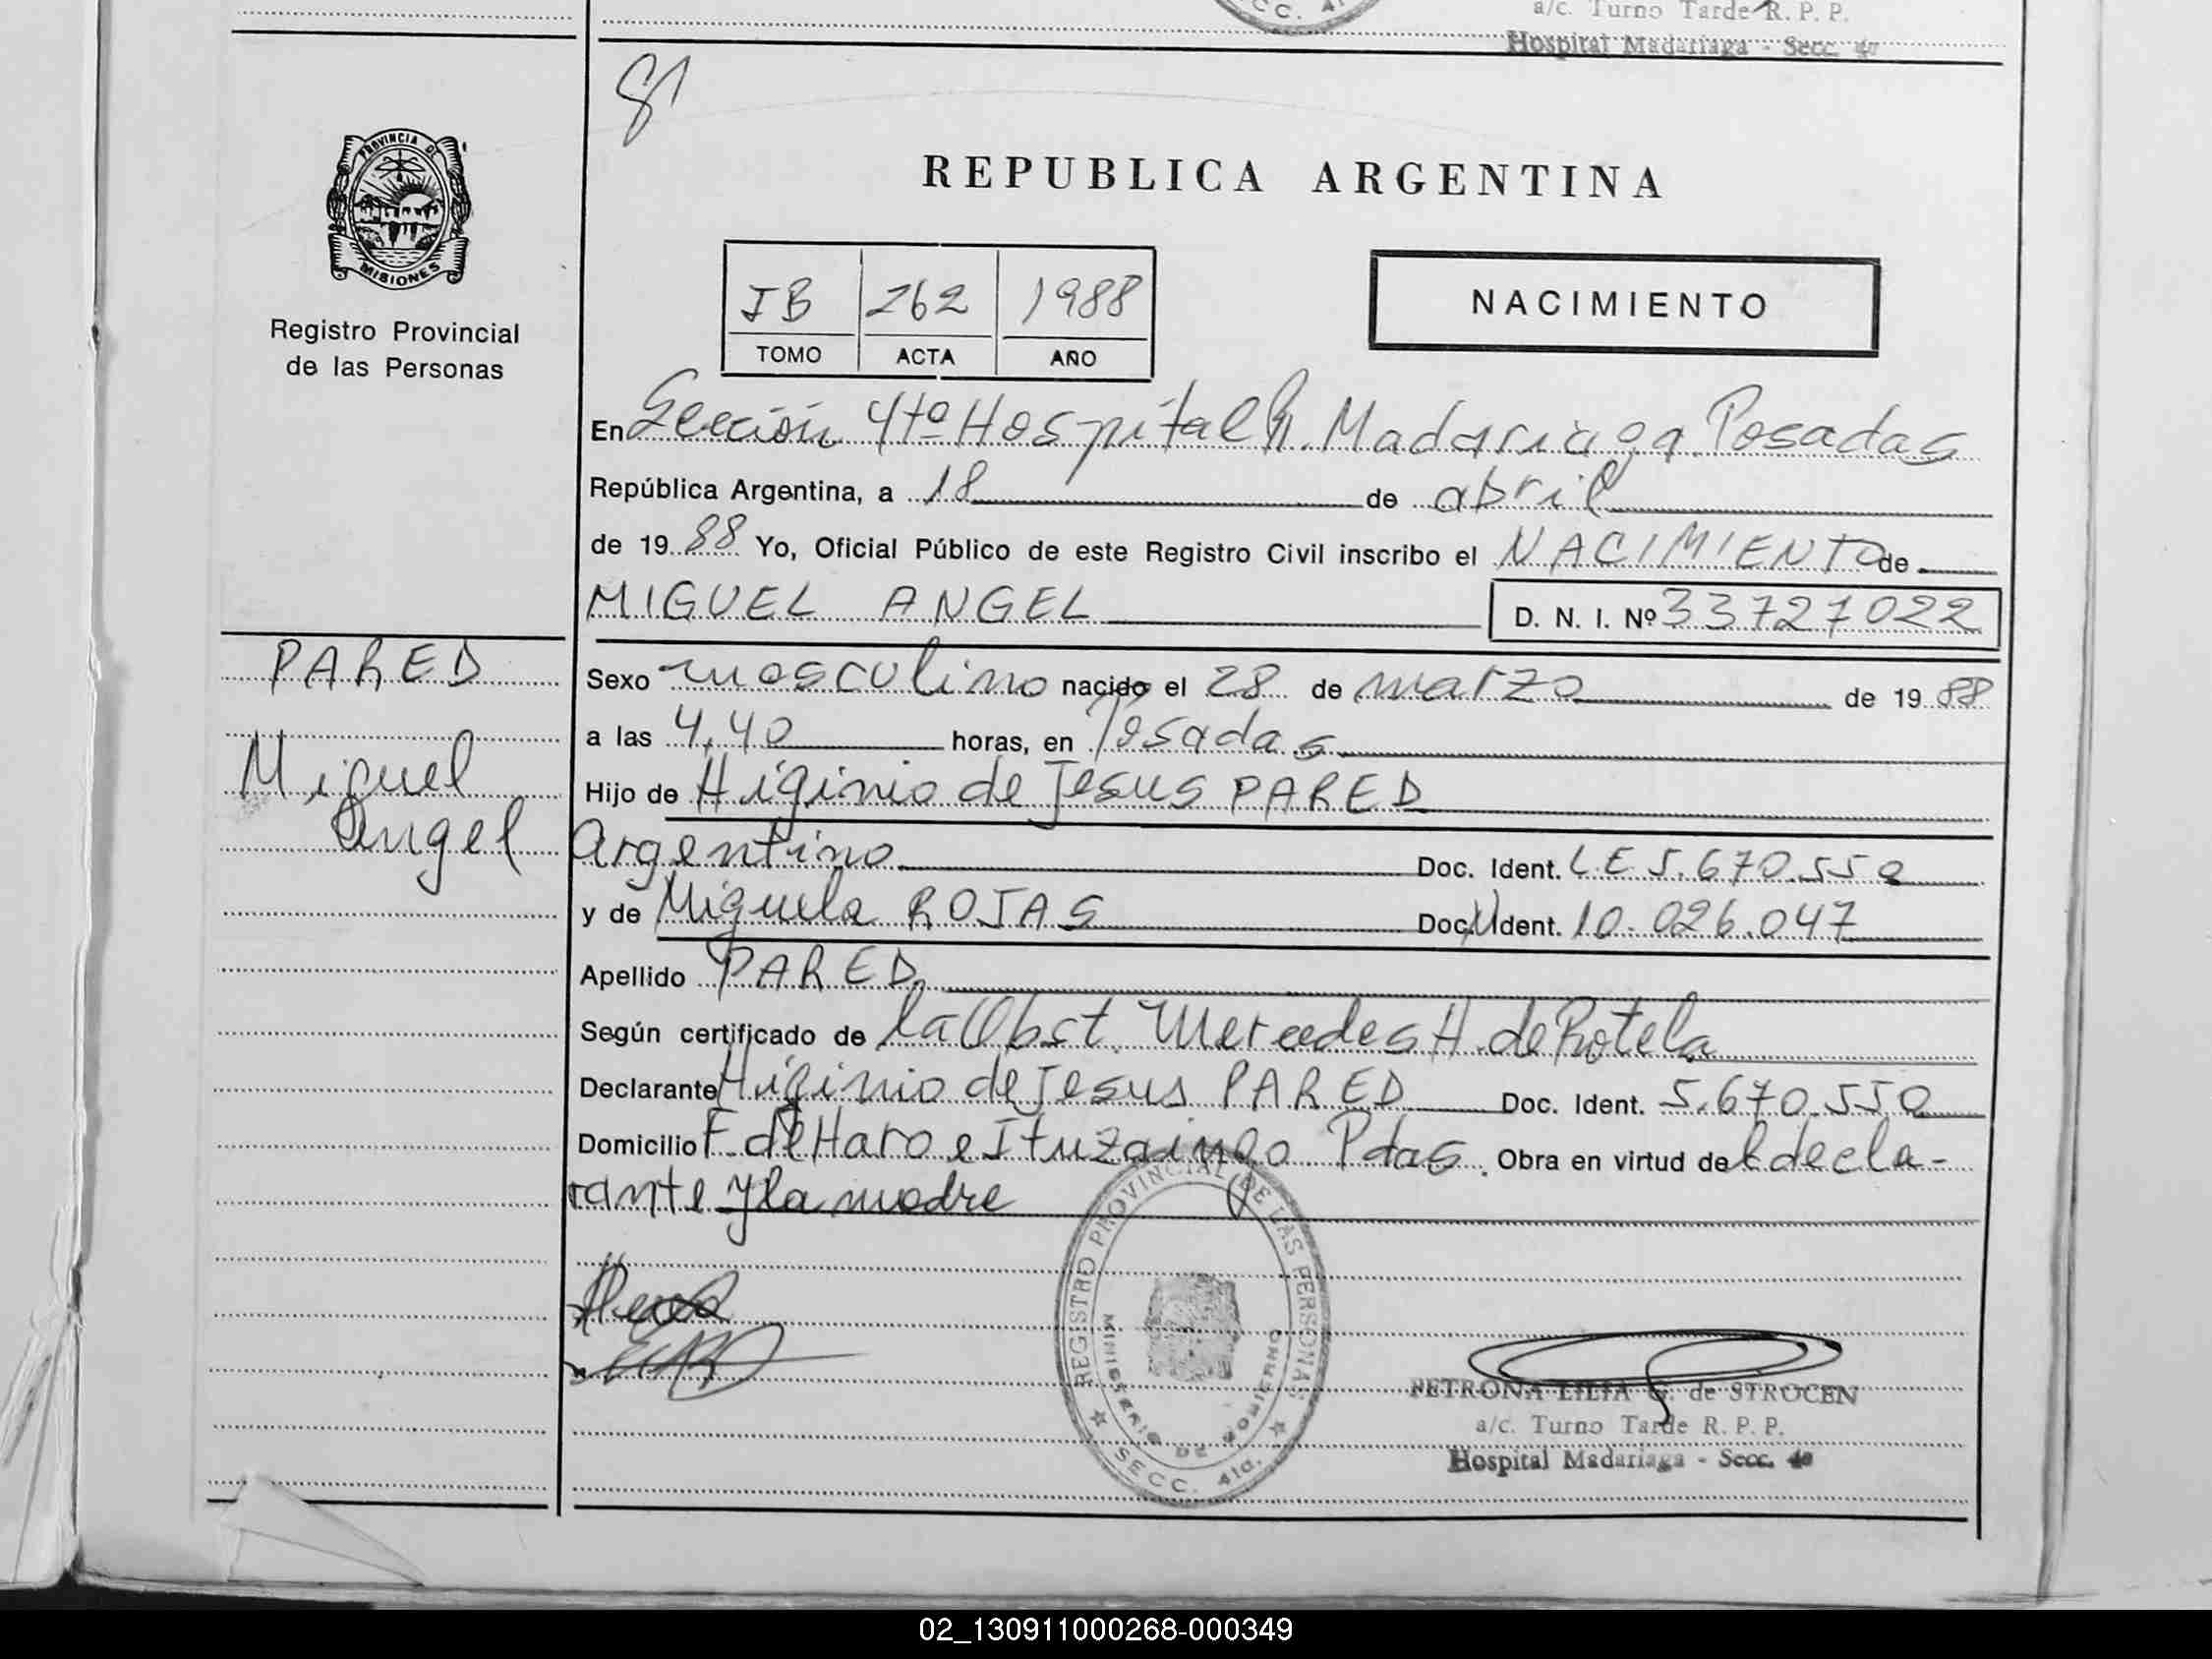 a/c. Turno Tarde R. P. P.
Hospital Madariaga - Secc. 4a
PROVINCIA DE
MISIONES
Registro Provincial
de las Personas
REPUBLICA ARGENTINA
IB 262 1988
TOMO ACTA AÑO
NACIMIENTO
En Sección 4to Hospital R. Madariaga Posadas
República Argentina, a 18 de abril
de 1988 Yo, Oficial Público de este Registro Civil inscribo el NACIMIENTO de
MIGUEL ANGEL D. N. I. Nº 33727022
PARED
Miguel
Angel
Sexo masculino nacido el 28 de marzo de 1988
a las 4,40 horas, en Posadas
Hijo de Higinio de Jesus PARED
Argentino Doc. Ident. LE 5.670.550
y de Miguela ROJAS Doc. Ident. 10.026.047
Apellido PARED
Según certificado de la Obst. Mercedes H. de Rotela
Declarante Higinio de Jesus PARED Doc. Ident. 5.670.550
Domicilio F. de Haro e Ituzaingo Pdas. Obra en virtud de l decla-
rante y la madre
REGISTRO PROVINCIAL DE LAS PERSONAS
MINISTERIO DE GOBIERNO
SECC. 4ta.
PETRONA LILIA G. de STROCEN
a/c. Turno Tarde R. P. P.
Hospital Madariaga - Secc. 4a
02_130911000268-000349